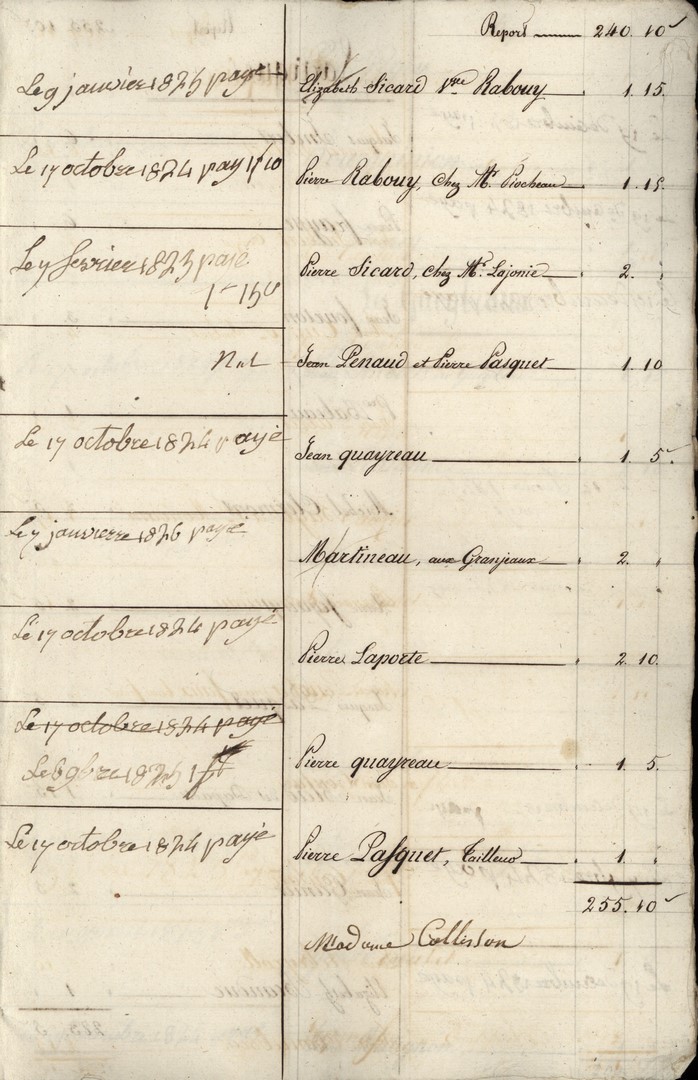 Report 240. 10
Le 9 janvier 1825 payé Elizabeth Sicard Vve Rabouy 1. 15.
Le 17 octobre 1824 pay 1f 10 Pierre Rabouy, chez Mr. Piocheau 1. 15.
Le 7 fevrier 1825 payé Pierre Sicard, chez Mr. Lajonie 2. "
1 15
Nul Jean Penaud et Pierre Pasquet 1. 10
Le 17 octobre 1824 payé Jean quayreau 1. 5
Le 7 janvierre 1826 payé Martineau, aux Granjeaux 2. "
Le 17 octobre 1824 payé Pierre Laporte 2. 10.
Le 17 octobre 1824 payé
Le 6 9bre 1825 1f Pierre quayreau 1. 5.
Le 17 octobre 1824 payé Pierre Pasquet, Tailleur 1. "
255. 10
Madame Collisson